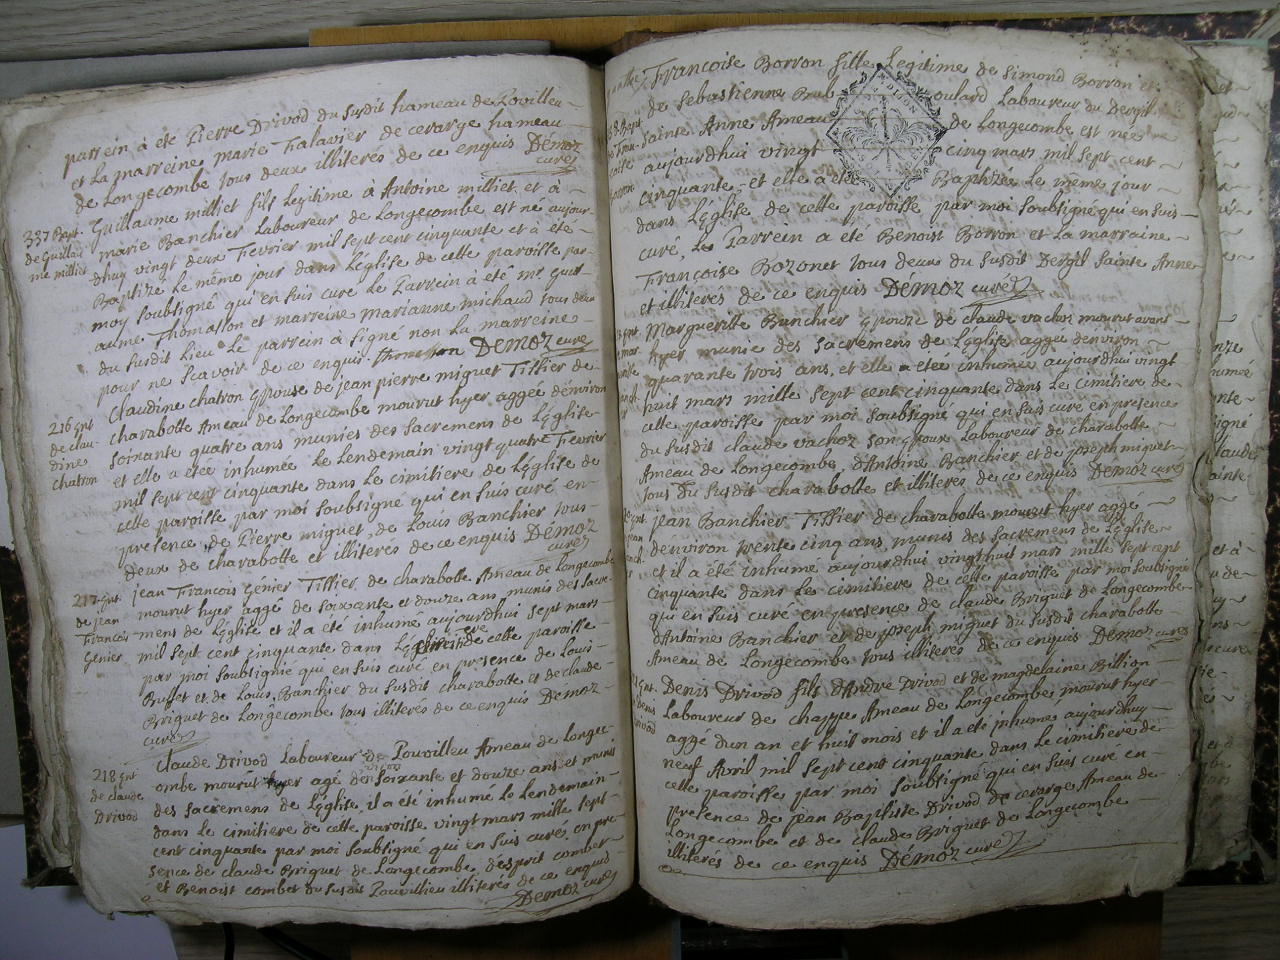 parrein à été Pierre Drivod du susdit hameau de
et La marreine marie Falavier de cerarge hameau
de Longecombe tous deux illiterés de ce enquis Démoz
curez
337 Bapt
de Guillau
me milliet
Guillaume milliet fils Legitime à Antoine milliet et à
marie Banchier Laboureur de Longecombe est né aujour-
dhuy vingt deux Fevrier mil sept cent cinquante et à été
Baptizé Le même jour dans L'église de cette paroisse par
moy soubsigné qui en suis curé Le Parrein à eté mr. guil-
aume Thomasson et marreine marianne michaud tous deux
du susdit Lieu Le parrein à signé non La marreine
pour ne scavoir de ce enquis Thomasson Démoz curé
216 Ent
de clau
dine
chatron
Claudine chatron Epouse de jean pierre miguet Tissier de
charabotte Ameau de Longecombe mourut hyer aggée denviron
soixante quatre ans munies des sacremens de L'église
et elle a étée inhumée Le Lendemain vingt quatre Fevrier
mil sept cent cinquante dans Le cimitiere de L'église de
cette paroisse par moi soubsigné qui en suis curé en
presence de Pierre miguet, de Louis Banchier tous
deux de charabotte et illiterés de ce enquis Démoz
curéz
217 Ent
de jean
Francois
Génier
jean Francois Génier Tissier de charabotte Ameau de Longecombe
mourut hyer aggé de soixante et douze ans, munis des sacre-
mens de L'église et il a été inhume aujourdhui sept mars
mil sept cent cinquante dans de cette paroisse
par moi soubsigné qui en suis curé en presence de Louis
Buffet et de Louis Banchier du susdit charabotte et de claude
Briguet de Longecombe tous illiterés de ce enquis Démoz
curez
218 Ent
de claude
Drivod
Claude Drivod Laboureur de Pouvilleu Ameau de Longe
ombe mourut hyer agé de soixante et douze ans et munis
des sacremens de L'église il a eté inhumé Le Lendemain
dans Le cimitiere de cette paroisse vingt mars mille sept
cent cinquante par moi soubsigné qui en suis curés en pre-
sence de claude Briguet de Longecombe, desprit combet
et Benoist combet du susdit Pouvillieu illiterés de ce enquis
Démoz curéz
Françoise Borron fille Legitime de Simond Borron et
de Sebastienne oulard Laboureur du Dergil
Sainte Anne Ameau de Longecombe est née
aujourdhui vingt cinq mars mil sept cent
cinquante et elle a eté Baptizée Le même jour
dans L'église de cette paroisse par moi soubsigné qui en suis
curé, Le Parrein a été Benoist Borron et La marraine
Françoise Bozonet tous deux du susdit Dergil Sainte Anne
et illiterés de ce enquis Démoz curéz
Marguerite Banchier Epouze de claude vachoz mourut avant
hyer munie des sacremens de L'église aggée denviron
quarante trois ans, et elle a étée inhumée aujourdhui vingt
huit mars mille sept cent cinquante dans Le cimitiere de
cette paroisse par moi soubsigné qui en suis curé en presence
du susdit claude vachoz son Epoux Laboureur de charabotte
Ameau de Longecombe, d'Antoine Banchier et de joseph miguet
tous du susdit charabotte et illiterés de ce enquis Démoz curé
jean Banchier Tissier de charabotte mourut hyer aggé
denviron trente cinq ans munis des sacremens de L'église
et il a été inhumé aujourdhui vingt huit mars mille sept cent
cinquante dans Le cimitiere de cette paroisse par moi soubsigné
qui en suis curé en presence de claude Briguet de Longecombe
d'Antoine Banchier et de joseph miguet du susdit charabotte
Ameau de Longecombe tous illiterés de ce enquis Démoz curéz
Ent.
Denis
Drivod
Denis Drivod fils d'André Drivod et de magdelaine Billion
Laboureur de chappe Ameau de Longecombes mourut hyer
aggé d'un an et huit mois et il a eté inhumé aujourdhuy
neuf Avril mil sept cent cinquante dans Le cimitiere de
cette paroisse par moi soubsigné qui en suis curé en
presence de jean Baptiste Drivod de cerarge Ameau de
Longecombe et de claude Briguet de Longecombe
illiterés de ce enquis Démoz curéz